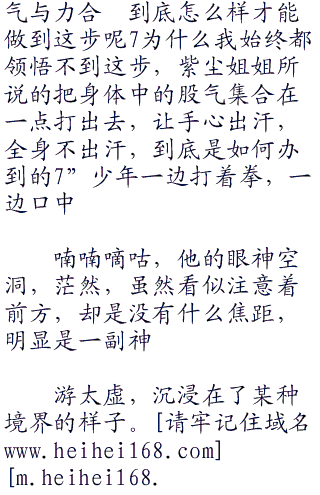 气与力合　到底怎么样才能
做到这步呢7为什么我始终都
领悟不到这步，紫尘姐姐所
说的把身体中的股气集合在
一点打出去，让手心出汗，
全身不出汗，到底是如何办
到的7”少年一边打着拳，一
边口中
喃喃嘀咕，他的眼神空
洞，茫然，虽然看似注意着
前方，却是没有什么焦距，
明显是一副神
游太虚，沉浸在了某种
境界的样子。[请牢记住域名
www.heihei168.com]
[m.heihei168.